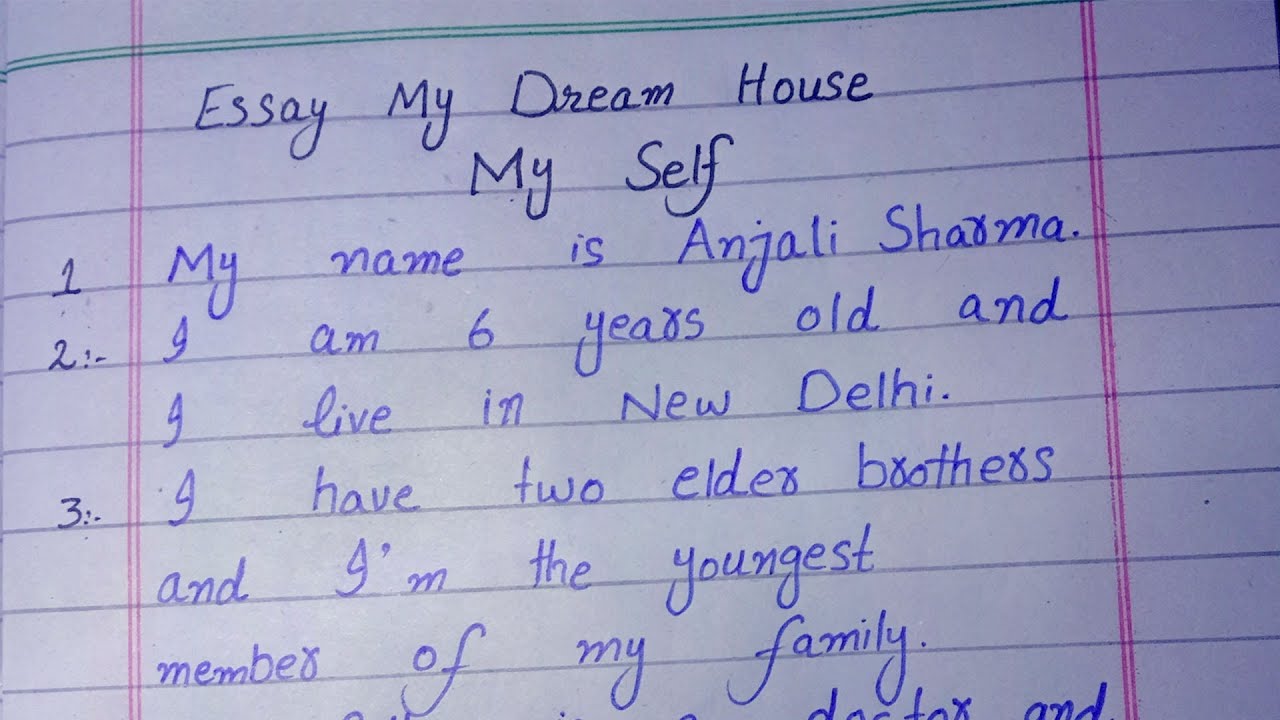 Essay My Dream House
My Self
1 My name is Anjali Sharma.
2:- I am 6 years old and
I live in New Delhi.
3:- I have two elder brothers
and I'm the youngest
member of my family.
doctor and